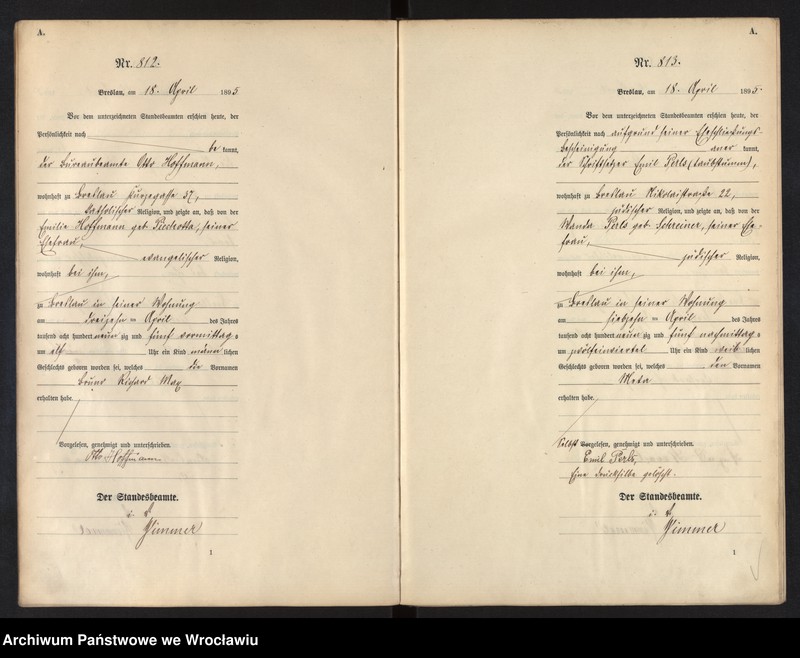 A.
Nr. 812.
Breslau, am 18. April 1895
Vor dem unterzeichneten Standesbeamten erschien heute, der
Persönlichkeit nach
be kannt,
der Bureaubeamte Otto Hoffmann,
wohnhaft zu Breslau Kurzegasse 57,
katholischer Religion, und zeigte an, daß von der
Emilie Hoffmann geb. Piechotta, seiner
Ehefrau,
evangelischer Religion,
wohnhaft bei ihm,
zu Breslau in seiner Wohnung
am dreizehn ten April des Jahres
tausend acht hundert neun zig und fünf vormittag s
um elf Uhr ein Kind männ lichen
Geschlechts geboren worden sei, welches die Vornamen
Bruno Richard Max
erhalten habe.
Vorgelesen, genehmigt und unterschrieben.
Otto Hoffmann
Der Standesbeamte.
Zimmer
1
A.
Nr. 813.
Breslau, am 18. April 1895.
Vor dem unterzeichneten Standesbeamten erschien heute, der
Persönlichkeit nach aufgrund seiner Eheschließungs-
bescheinigung aner kannt,
der Schriftsetzer Emil Perls (taubstumm),
wohnhaft zu Breslau Nikolaistraße 22,
jüdischer Religion, und zeigte an, daß von der
Wanda Perls geb. Schreiner, seiner Ehe-
frau,
jüdischer Religion,
wohnhaft bei ihm,
zu Breslau in seiner Wohnung
am siebzehn ten April des Jahres
tausend acht hundert neun zig und fünf nachmittag s
um zwölfeinviertel Uhr ein Kind weib lichen
Geschlechts geboren worden sei, welches den Vornamen
Meta
erhalten habe.
Selbst Vorgelesen, genehmigt und unterschrieben.
Emil Perls,
Eine Drucksilbe gelöscht.
Der Standesbeamte.
Zimmer
1
Archiwum Państwowe we Wrocławiu